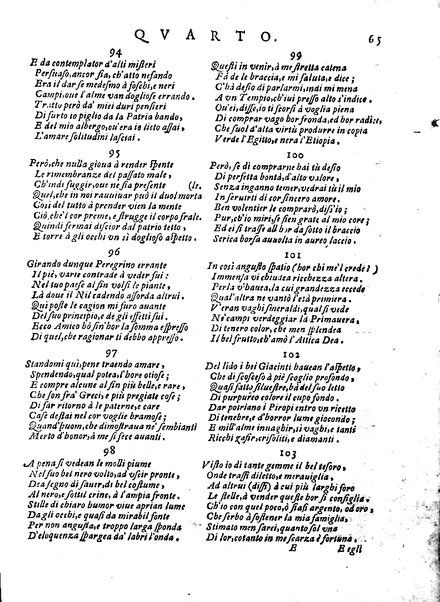 QVARTO. 65
94
E da contemplator d'alti misteri
Persitaso, ancor sia, ch'atto nefando
Era il dar se medesmo à foschi, e neri
Campi, oue l'alme van dogliose errando.
Tratto però da' miei duri pensieri
Di furto io piglio da la Patria bando,
E del mio albergo, ou' era io lieto assai,
L'amare solitudini lasciai.
95
Però, che nulla gioua à render spente
Le rimembranze del passato male,
Ch'indi fuggir, oue ne sia presente (le.
Quel, che in noi rauuiuar può il duol morta
Così del tutto à prender vien la mente
Ciò, che'l cor preme, e strugge il corpo frale.
Quindi fermai discior dal patrio tetto,
E torre à gli occhi vn sì doglioso aspetto.
96
Girando dunque Peregrino errante
Il piè, varie contrade à veder fui:
Nel tuo paese al fin volsi le piante,
Là doue il Nil cadendo assorda altrui.
Qui poste le cagion mi furo auante
Del suo principio, e de gli effetti sui.
Ecco Amico bò fin'hor la somma espresso
Di quel, che ragionar ti debbo appresso.
97
Standomi quì, pene traendo amare,
Spendendo, qual potea, l'hore otiose;
E compre alcune al fin più belle, e rare,
Che son frà Greci, e più pregiate cose;
Di far ritorno à le paterne, e care
Case destai nel cor voglie bramose;
Quand'huom, che dimostraua ne' sembianti
Merto d'honor, à me si fece auanti.
98
A pena si vedean le molli piume
Nel suo bel nero volto, ad vscir pronte,
Dea segno di sauer, di bel costume,
Al nero, e fosti crine, à l'ampia fronte.
Stille di chiaro humor viue aprian lume
Da gli occhi, e quasi da mirabil fonte
Per non angusta, e troppo larga sponda
D'eloquenza spargea da' labri l'onda.
99
Questi in venir, à me stretta catena
Fà de le braccia, e mi saluta, e dice;
C'hà desìo di parlarmi, indi mi mena
A vn Tempio, ch'iui presso alto s'indice.
Ou'ei, disse, io ti scorsi à voglia piena
Di comprar vago hor fronda, ed hor radice,
Che suol d'alta virtù produrre in copia
Verde l'Egitto, e nera l'Etiopia.
100
Però, se di comprarne hai tù desio
Di perfetta bontà, d'alto valore,
Senza inganno temer, vedrai tù il mio
In seruirti di cor sincero amore.
Ben volentier le comprarò, diss'io;
Pur, ch'io miri, se sien grate al mio core;
Ed ei si trasse all'hor da sotto il braccio
Serica borsa auuolta in aureo laccio.
101
In così angusto spatio (hor chi me'l crede?)
Immensa vi chiudea ricchezza altera.
Perla v'hauea, la cui grandezza eccede
Qual'altra ne vantò l'età primiera.
V'eran vaghi smeraldi, qual si vede
Ne' campi verdeggiar la Primauera,
Di tenero color, che men splendea
Il bel frutto, eb'amò l'Attica Dea.
102
Del lido i bei Giacinti hauean l'aspetto,
Che di scosceso à piè scoglio profondo,
Quasi fatto silustre, bà del suo letto
Di purpureo colore il cupo fondo.
Dar potriano i Piropi entro vn ricetto
Di tenebre, e d'horror lume giocondo;
E mill'alme inuaghir, sì vaghi, e tanti
Ricchi zafir, crisoliti, e diamanti.
103
Visto io di tante gemme il bel tesoro,
Onde traßi diletto, e merauiglia,
Ad altrui (dissi) à cui più larghi foro
Le stelle, à vender queste hor si consiglia.
Ch'io con quel poco, ò siasi argento, od oro,
Che serbo à sostener la mia famiglia,
Stimato men sarei, quanto sol vna
Di lor, cotanto in me scarza è fortuna.
E E egli